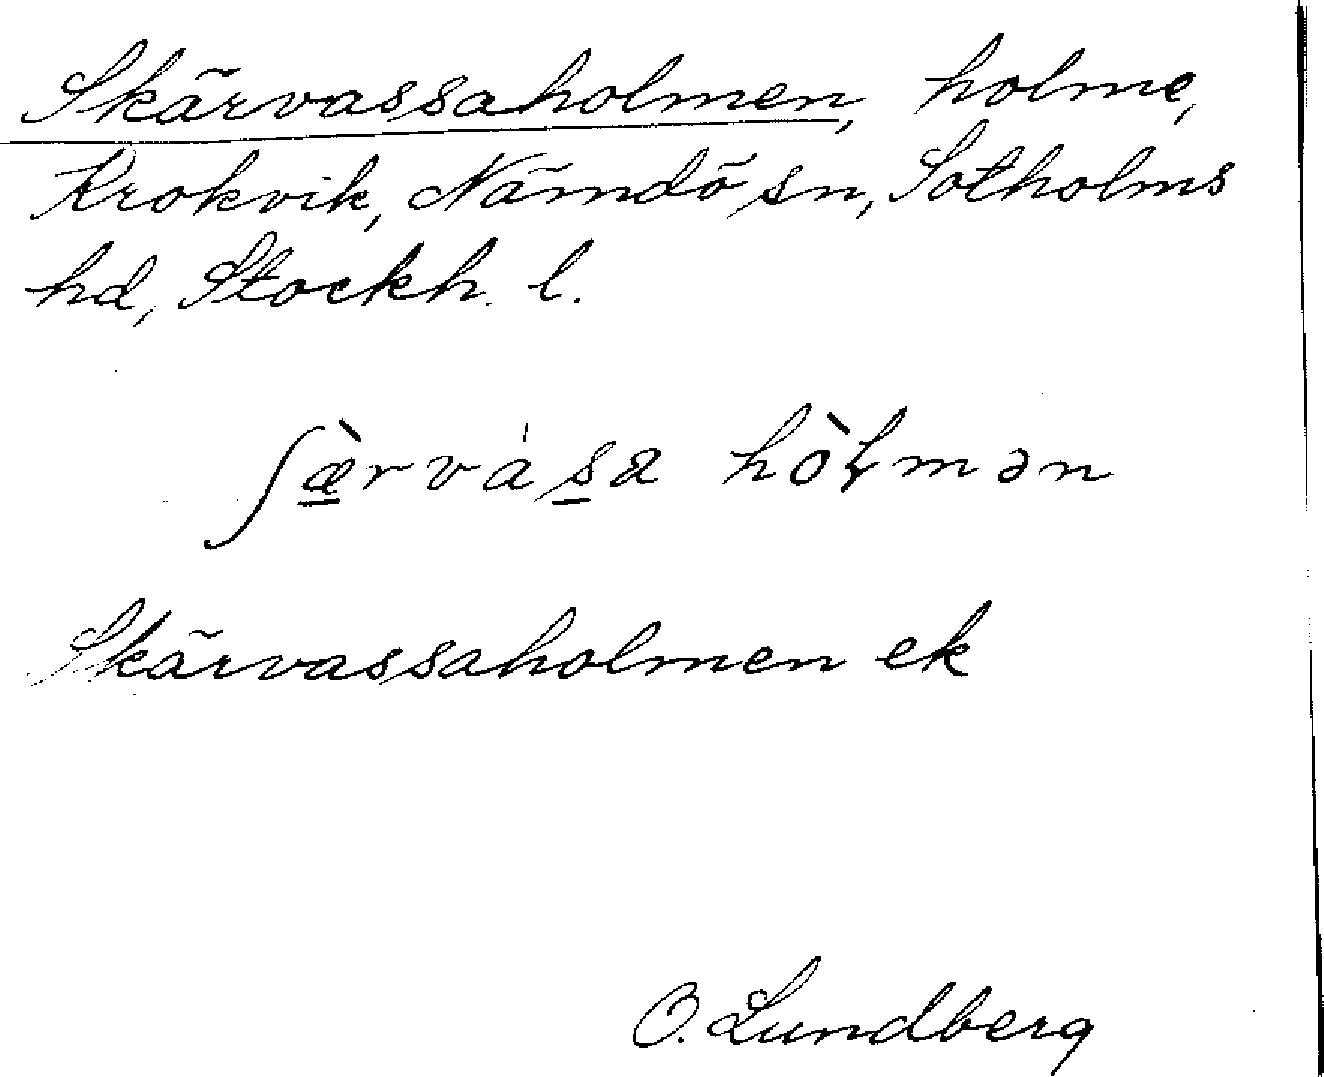 Skärvassaholmen, holme,
Krokvik, Nämdö sn, Sotholms
hd, Stockh. l.
ʃæ̀rvása hòɫmən
Skärvassaholmen ek
O. Lundberg